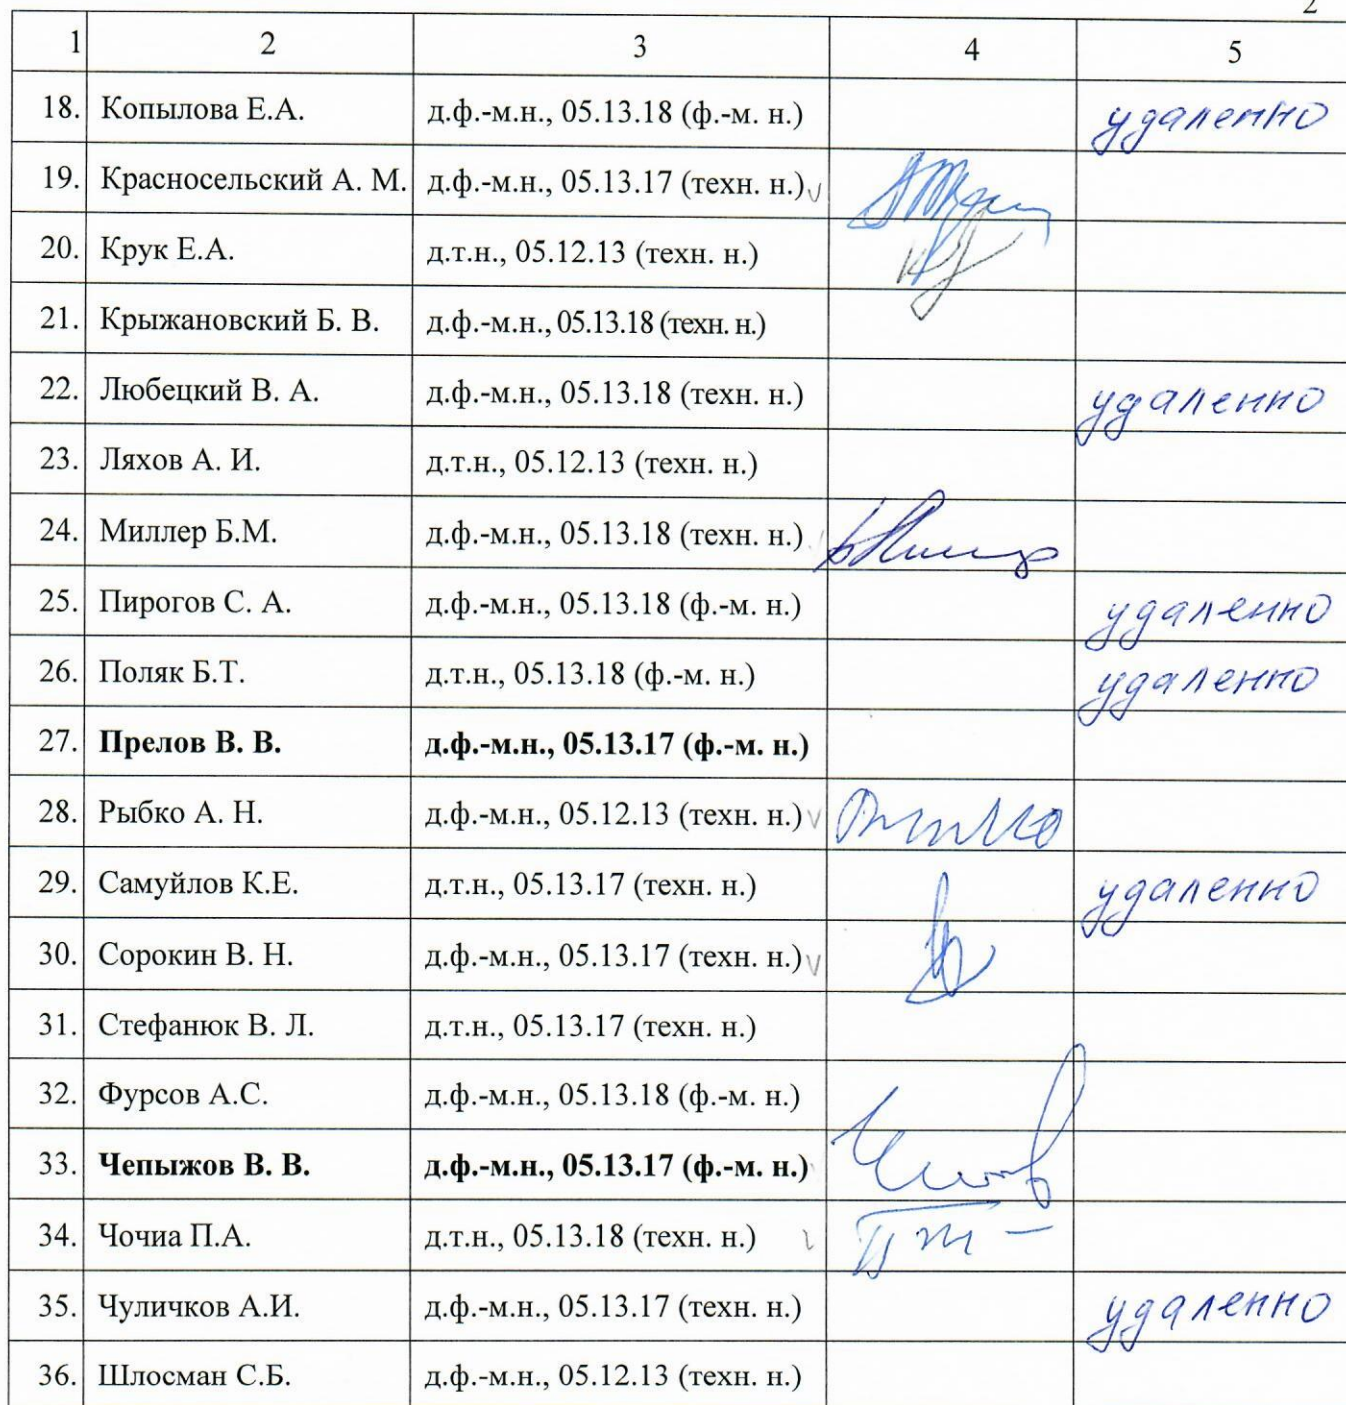 2
1 2 3 4 5
18. Копылова Е.А. д.ф.-м.н., 05.13.18 (ф.-м. н.) удаленно
19. Красносельский А. М. д.ф.-м.н., 05.13.17 (техн. н.)
20. Крук Е.А. д.т.н., 05.12.13 (техн. н.)
21. Крыжановский Б. В. д.ф.-м.н., 05.13.18 (техн. н.)
22. Любецкий В. А. д.ф.-м.н., 05.13.18 (техн. н.) удаленно
23. Ляхов А. И. д.т.н., 05.12.13 (техн. н.)
24. Миллер Б.М. д.ф.-м.н., 05.13.18 (техн. н.)
25. Пирогов С. А. д.ф.-м.н., 05.13.18 (ф.-м. н.) удаленно
26. Поляк Б.Т. д.т.н., 05.13.18 (ф.-м. н.) удаленно
27. Прелов В. В. д.ф.-м.н., 05.13.17 (ф.-м. н.)
28. Рыбко А. Н. д.ф.-м.н., 05.12.13 (техн. н.)
29. Самуйлов К.Е. д.т.н., 05.13.17 (техн. н.) удаленно
30. Сорокин В. Н. д.ф.-м.н., 05.13.17 (техн. н.)
31. Стефанюк В. Л. д.т.н., 05.13.17 (техн. н.)
32. Фурсов А.С. д.ф.-м.н., 05.13.18 (ф.-м. н.)
33. Чепыжов В. В. д.ф.-м.н., 05.13.17 (ф.-м. н.)
34. Чочиа П.А. д.т.н., 05.13.18 (техн. н.)
35. Чуличков А.И. д.ф.-м.н., 05.13.17 (техн. н.) удаленно
36. Шлосман С.Б. д.ф.-м.н., 05.12.13 (техн. н.)